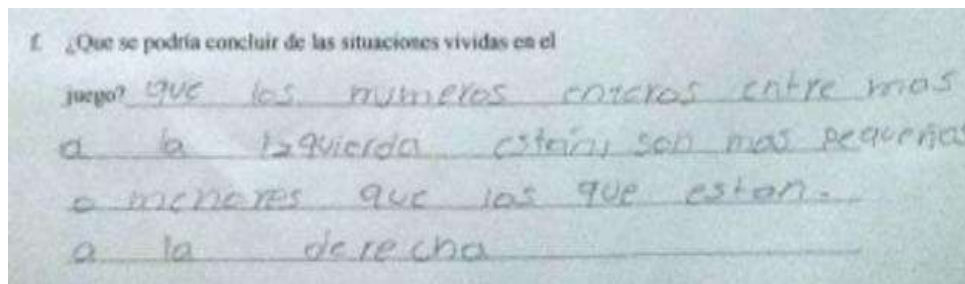 f. ¿Que se podría concluir de las situaciones vividas en el
juego? que los numeros enteros entre mas
a la izquierda están, son mas pequeños
o menores que los que estan.
a la derecha